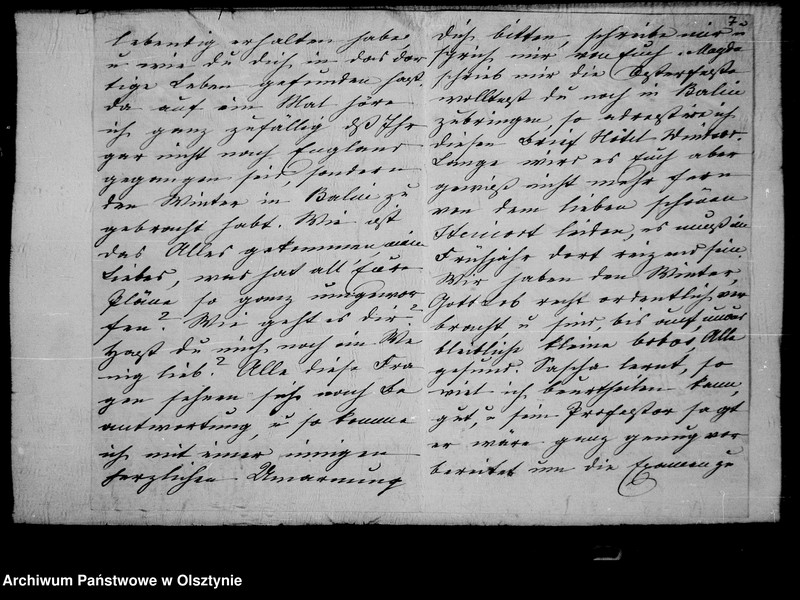 lebendig erhalten habe
u wie du dich in das dor
tige Leben gefunden hast.
Da auf ein Mal höre
ich ganz zufällig daß Ihr
gar nicht nach England
gegangen seid, sondern
den Winter in Berlin zu
gebracht habt. Wie ist
das Alles gekommen mein
Liebes, was hat all' Eure
Pläne so ganz umgewor
fen? Wie geht es dir?
Hast du mich noch ein We
nig lieb? Alle diese Fra
gen sehnen sich nach Be
antwortung, u so komme
ich mit einer innigen
herzlichen Umarmung
7
dich bitten, schreibe mir u
sprich mir von Euch. Magda
schrieb mir die Osterfeste
wolltest du noch in Berlin
zubringen, so adressire ich
diesen Brief Hôtel
Lange wird es Euch aber
gewiß nicht mehr fern
von dem lieben schönen
leiden, es muß im
Frühjahr dort reizend sein.
Wir haben den Winter,
Gottlob recht ordentlich ver
bracht, u sind, bis auf
kleine Alle
gesund. Sascha lernt, so
viel ich beurtheilen kann,
gut, u sein Professor sagt
er wäre ganz genug vor
bereitet um die Examen zu
Archiwum Państwowe w Olsztynie